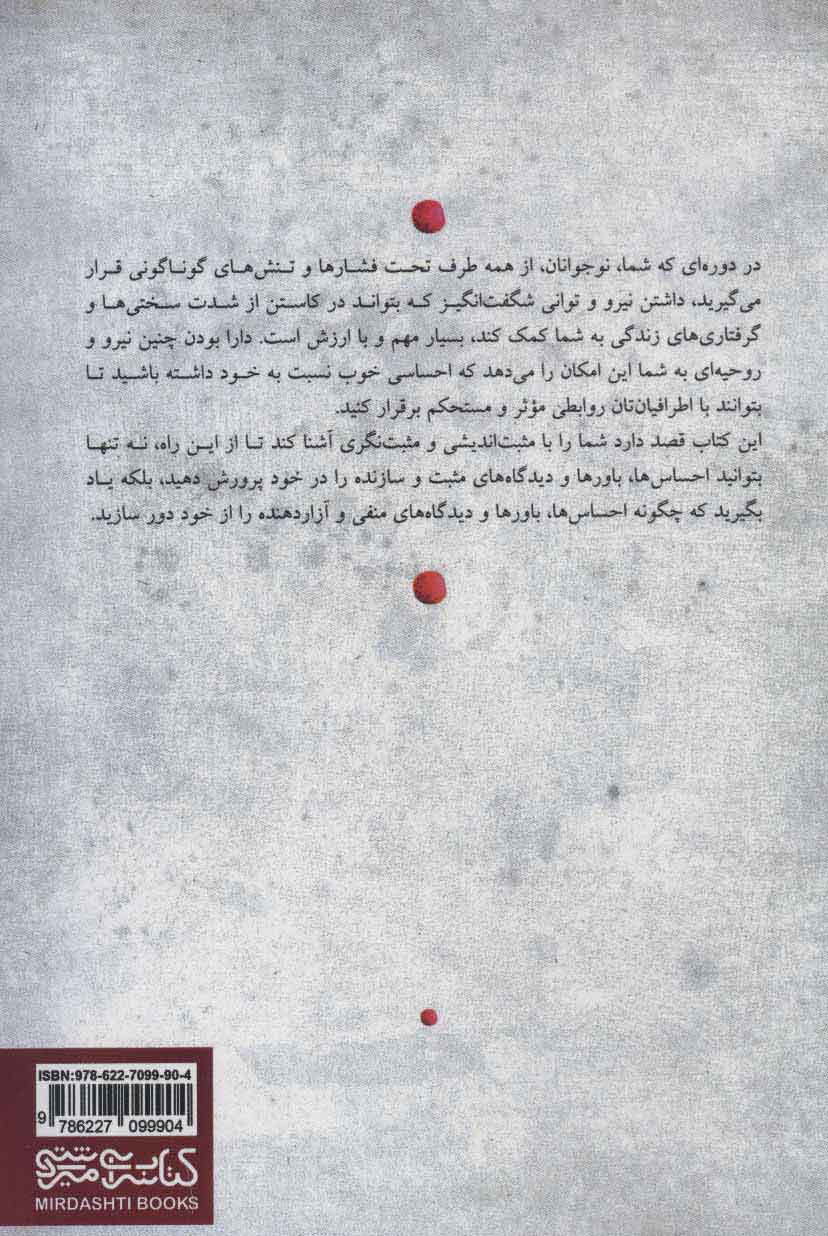 در دوره‌ای که شما، نوجوانان، از همه طرف تحت فشارها و تنش‌های گوناگونی قرار
می‌گیرید، داشتن نیرو و توانی شگفت‌انگیز که بتواند در کاستن از شدت سختی‌ها و
گرفتاری‌های زندگی به شما کمک کند، بسیار مهم و با ارزش است. دارا بودن چنین نیرو و
روحیه‌ای به شما این امکان را می‌دهد که احساسی خوب نسبت به خود داشته باشید تا
بتوانند با اطرافیان‌تان روابطی مؤثر و مستحکم برقرار کنید.
این کتاب قصد دارد شما را با مثبت‌اندیشی و مثبت‌نگری آشنا کند تا از این راه، نه تنها
بتوانید احساس‌ها، باورها و دیدگاه‌های مثبت و سازنده را در خود پرورش دهید، بلکه یاد
بگیرید که چگونه احساس‌ها، باورها و دیدگاه‌های منفی و آزاردهنده را از خود دور سازید.
ISBN:978-622-7099-90-4
9 786227 099904
کتابسرای میردشتی
MIRDASHTI BOOKS